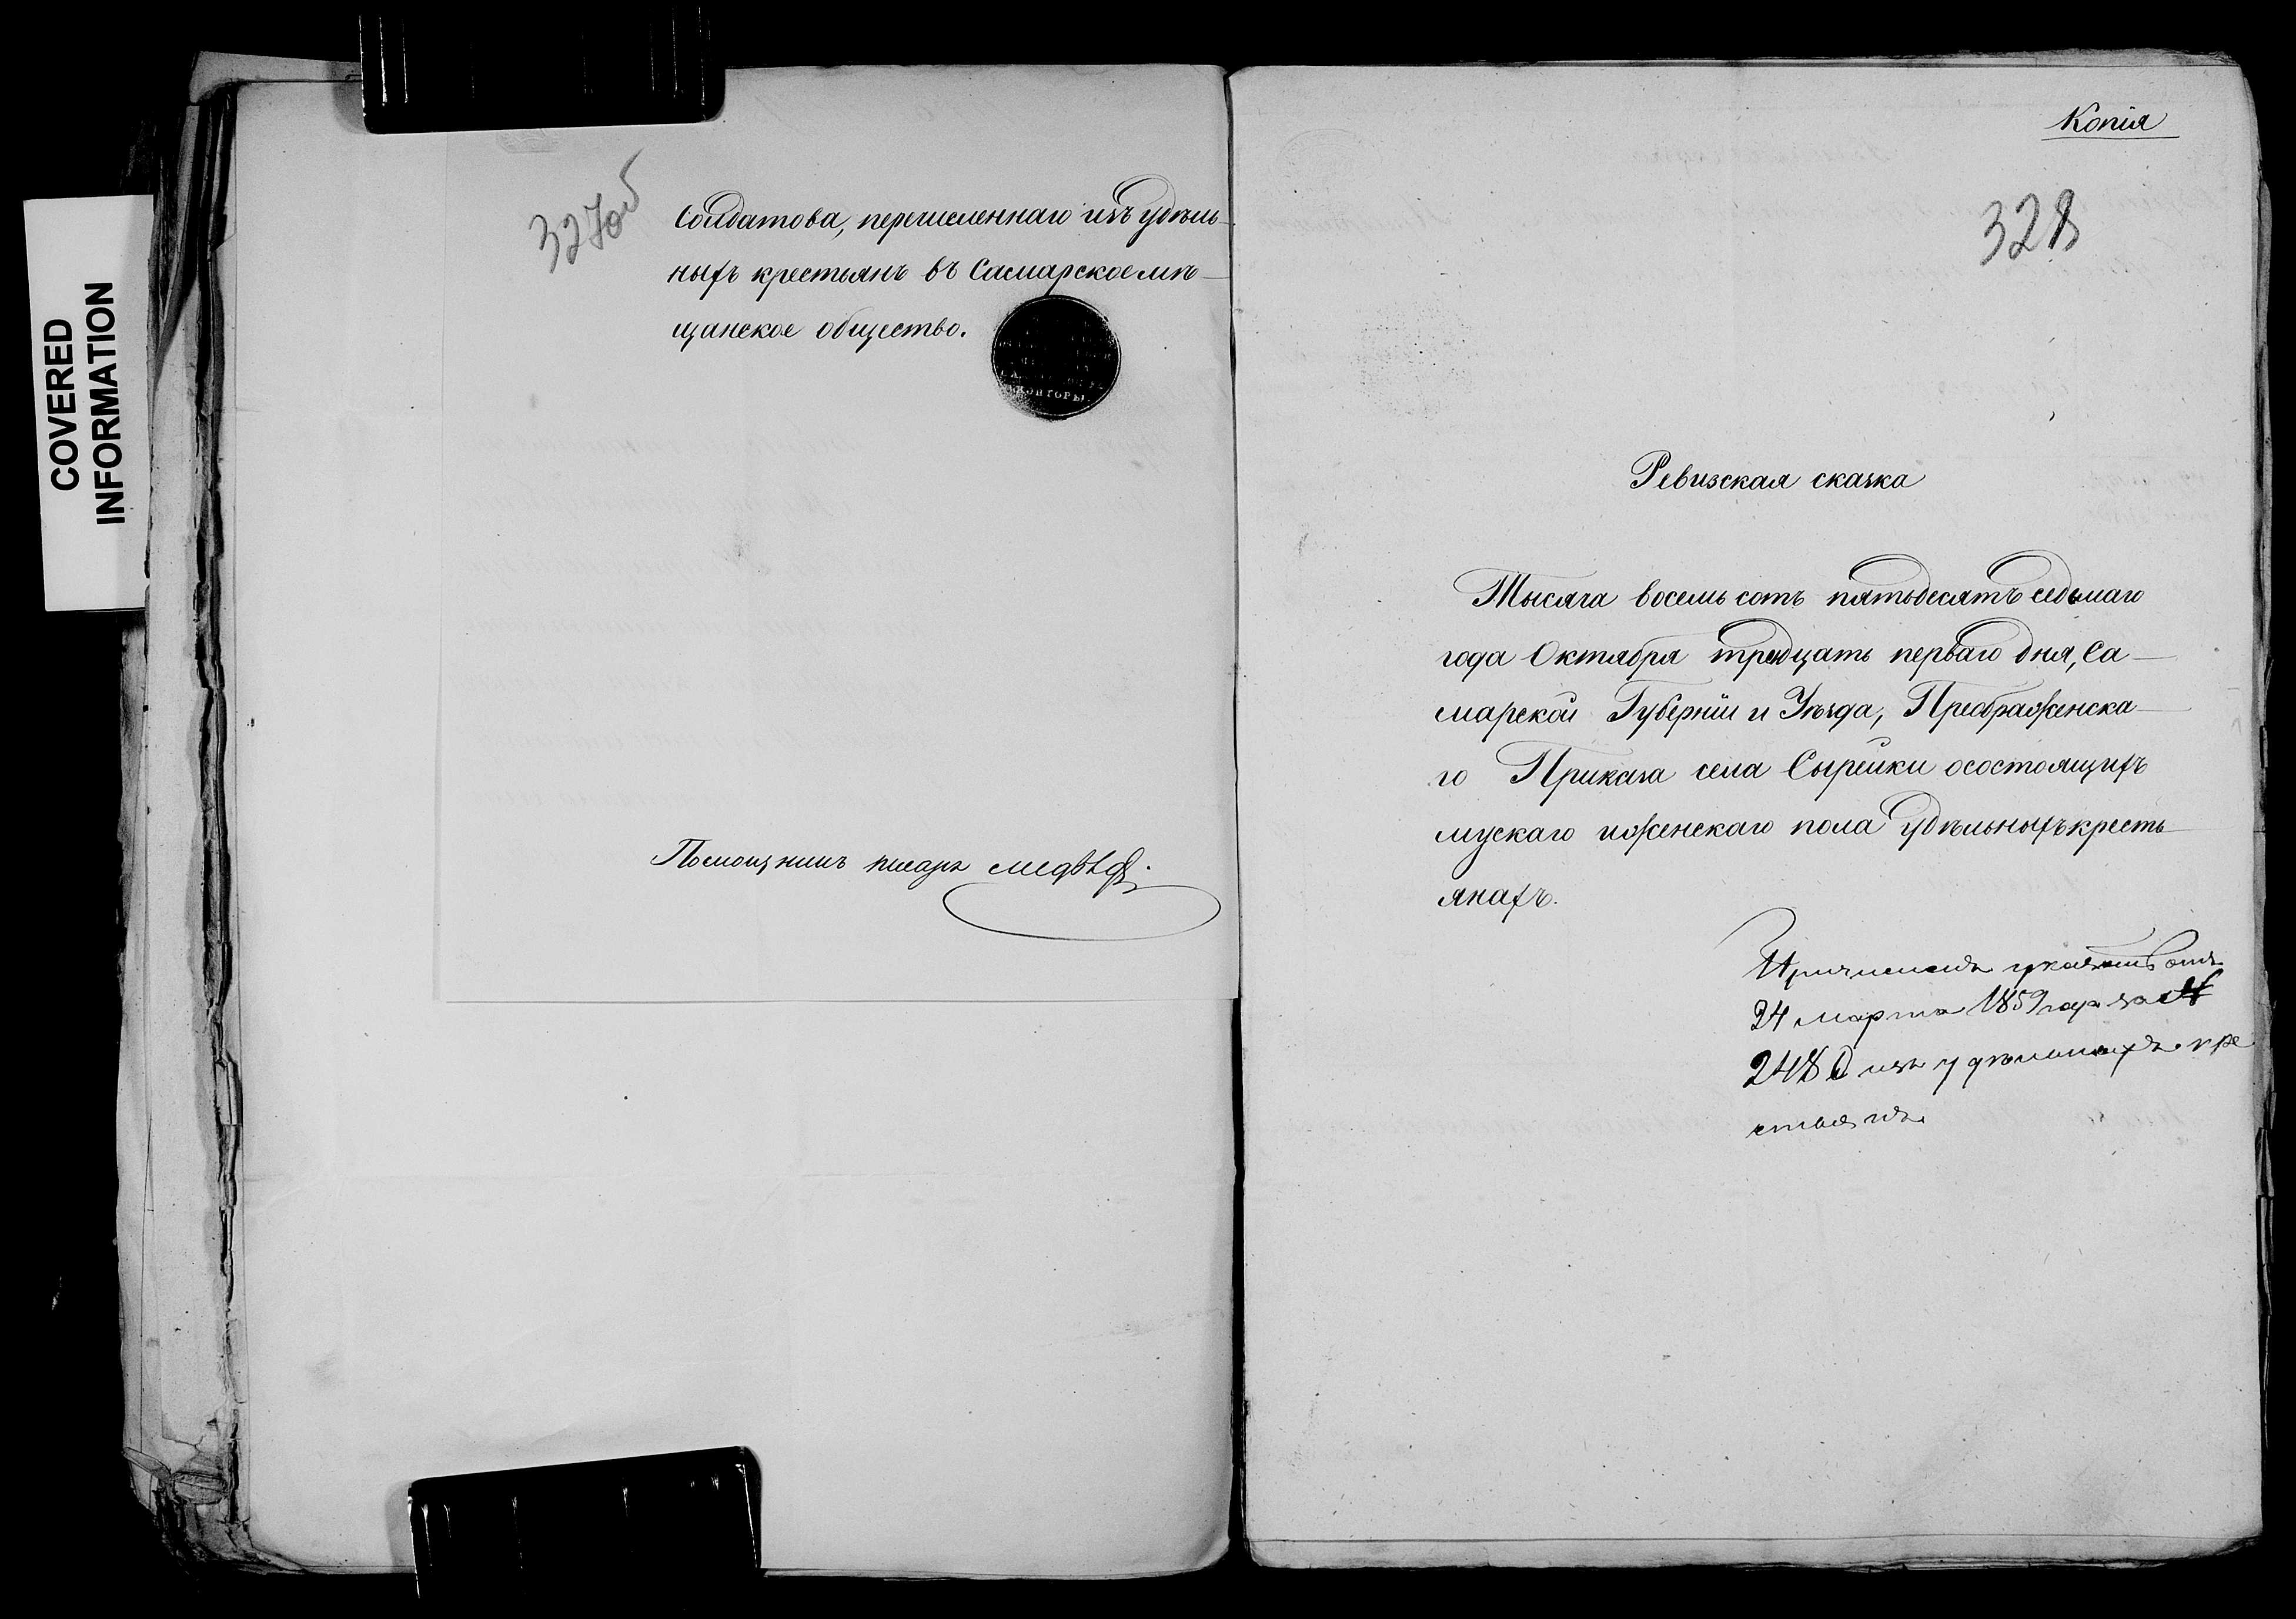 COVERED
INFORMATION
327об
Солдатова, перечисленнаго изъ удѣль-
ныхъ крестьянъ въ Самарское мѣ-
щанское общество.
КОНТОРЫ.
Помощникъ писаря
Копія
328
Ревизская сказка
Тысяча восемь сотъ пятьдесятъ седьмаго
года Октября тридцать перваго дня, Са-
марской Губерніи и Уѣзда, Преображенска-
го Приказа села Сырейки осостоящихъ
мускаго иженскаго пола удѣльныхъ кресть-
янахъ.
Причисленъ указомъ отъ
24 марта 1859 года за №
2480 изъ удѣльныхъ кре
стьянъ.